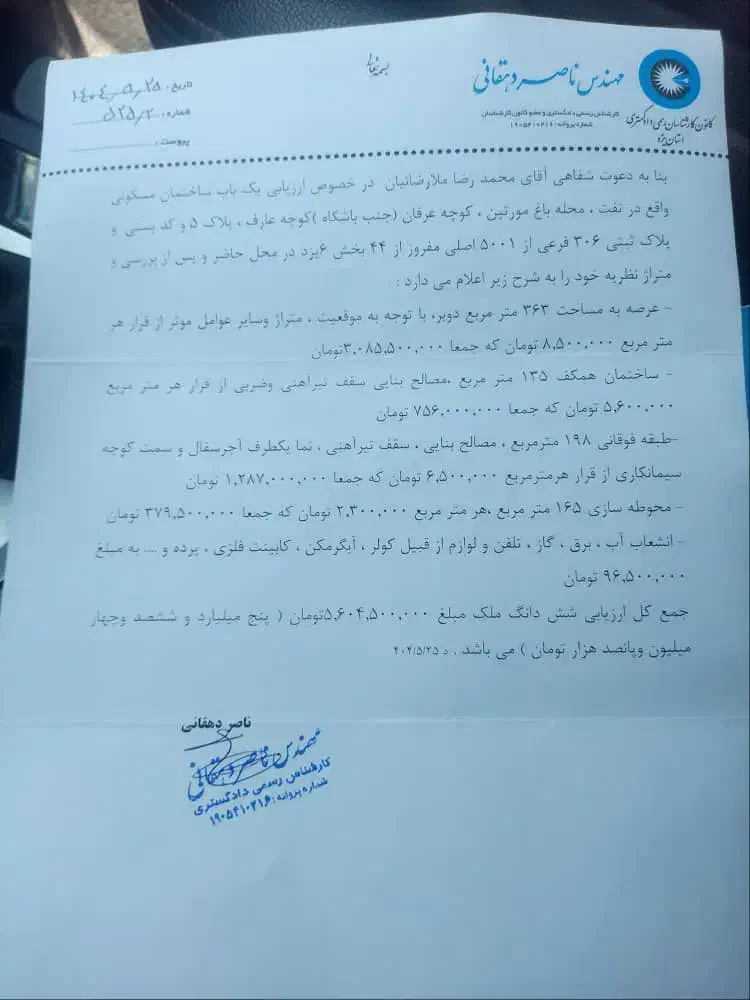 بسمه تعالی
مهندس ناصر دهقانی
کارشناس رسمی دادگستری و عضو کانون کارشناسان
شماره پروانه : ۱۹۰۵۴۱۰۲۱۶
کانون کارشناسان رسمی دادگستری
استان یزد
تاریخ : ۱۴۰۴-۵-۲۵
شماره : ۵۲۵/۲
پیوست :
بنا به دعوت شفاهی آقای محمد رضا ملارضائیان در خصوص ارزیابی یک باب ساختمان مسکونی
واقع در تفت ، محله باغ مورتین ، کوچه عرفان (جنب باشگاه )کوچه عارف ، پلاک ۵ و کد پستی و
پلاک ثبتی ۳۰۶ فرعی از ۵۰۰۱ اصلی مفروز از ۴۴ بخش ۶یزد در محل حاضر و پس از بررسی و
متراژ نظریه خود را به شرح زیر اعلام می دارد :
- عرصه به مساحت ۳۶۳ متر مربع دوبر، با توجه به موقعیت ، متراژ وسایر عوامل موثر از قرار هر
متر مربع ۸,۵۰۰,۰۰۰ تومان که جمعا ۳,۰۸۵,۵۰۰,۰۰۰تومان
- ساختمان همکف ۱۳۵ متر مربع ،مصالح بنایی سقف تیرآهنی وضربی از قرار هر متر مربع
۵,۶۰۰,۰۰۰ تومان که جمعا ۷۵۶,۰۰۰,۰۰۰ تومان
-طبقه فوقانی ۱۹۸ مترمربع ، مصالح بنایی ، سقف تیرآهنی ، نما یکطرف آجرسفال و سمت کوچه
سیمانکاری از قرار هرمترمربع ۶,۵۰۰,۰۰۰ تومان که جمعا ۱,۲۸۷,۰۰۰,۰۰۰ تومان
- محوطه سازی ۱۶۵ متر مربع ،هر متر مربع ۲,۳۰۰,۰۰۰ تومان که جمعا ۳۷۹,۵۰۰,۰۰۰ تومان
- انشعاب آب ، برق ، گاز ، تلفن و لوازم از قبیل کولر ، آبگرمکن ، کابینت فلزی ، پرده و .... به مبلغ
۹۶,۵۰۰,۰۰۰ تومان
جمع کل ارزیابی شش دانگ ملک مبلغ ۵,۶۰۴,۵۰۰,۰۰۰تومان ( پنج میلیارد و ششصد وچهار
میلیون وپانصد هزار تومان ) می باشد . د ۴۰۴/۵/۲۵
ناصر دهقانی
مهندس ناصر دهقانی
کارشناس رسمی دادگستری
شماره پروانه : ۱۹۰۵۴۱۰۲۱۶